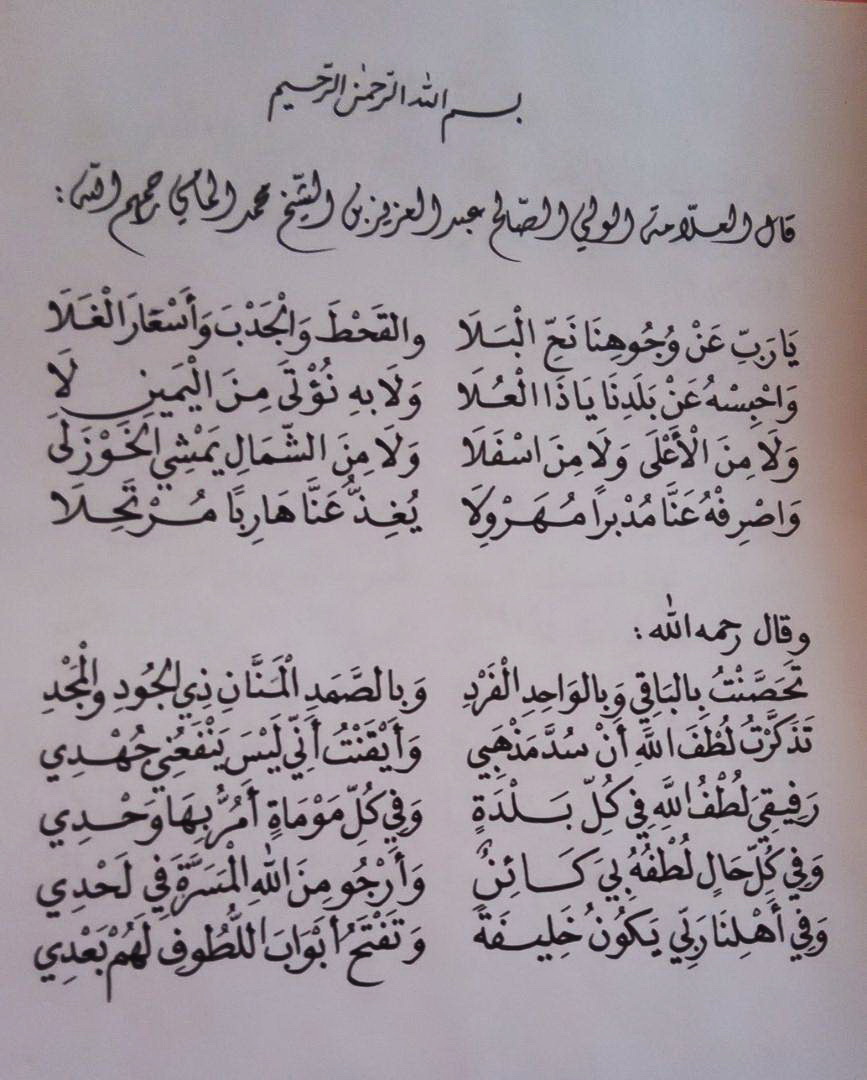 بسم الله الرحمن الرحيم
قال العلّامة الولي الصّالح عبد العزيز بن الشّيخ محمد الحامي رحمهم الله :
يَا رَبِّ عَنْ وُجُوهِنَا نَحِّ الْبَلَا والقَحْطَ وَالْجَدْبَ وَأَسْعَارَ الْغَلَا
وَاحْبِسْهُ عَنْ بَلَدِنَا يَاذَا الْعُلَا وَلَا بهِ نُؤْتَى مِنَ الْيَمَينِ لَا
وَلَا مِنَ الْأَعْلَى وَلَا مِنَ اسْفَلَا وَلَا مِنَ الشّمَالِ يَمْشِي الخَوْزَلَى
وَاصْرِفْهُ عَنَّا مُدْبراً مُهَرْوِلَا يُغِذُّ عَنَّا هَارِبًا مُرْتَحِلَا
وقال رحمه الله :
تَحَصَّنْتُ بِالبَاقِي وَبِالوَاحِدِ الْفَرْدِ وَبِالصَّمَدِ الْمَنَّانِ ذِي الجُودِ والْمَجْدِ
تَذَكَّرْتُ لُطْفَ اللَّهِ أَنْ سُدَّ مَذْهَبِي وَأَيْقَنْتُ أَنِّي لَيْسَ يَنْفَعُنِي جُهْدِي
رَفِيقِي لُطْفُ اللَّهِ فِي كُلِّ بَلْدَةٍ وَفِي كُلِّ مَوْمَاةٍ أَمُرُّ بِهَا وَحْدِي
وَفِي كُلِّ حَالٍ لُطْفُهُ بِيَ كَائِنٌ وَأَرْجُو مِنَ اللهِ الْمَسَرَّةَ فِي لَحْدِي
وَفِي أَهْلِنَا رَبِّي يَكُونُ خَلِيفَةً وَتَفْتَحُ أبْوَابَ اللُّطُوفِ لَهُمْ بَعْدِي